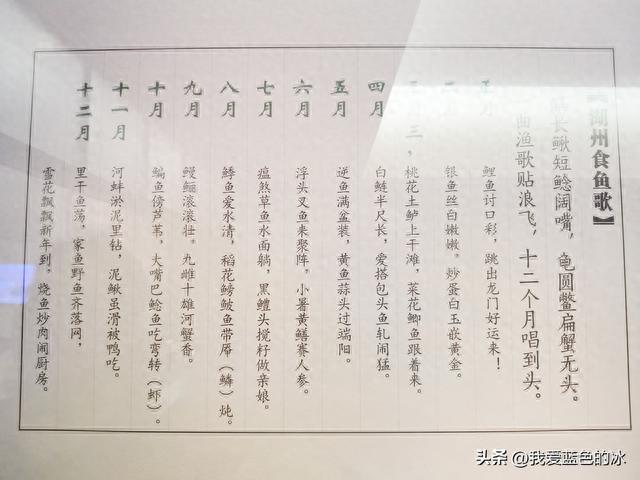 【湖州食鱼歌】
长鳅短鲶阔嘴，龟圆鳖扁蟹无头。
渔歌贴浪飞，十二个月唱到头。
正月
鲤鱼讨口彩，跳出龙门好运来！
二月
银鱼丝白嫩嫩。炒蛋白玉嵌黄金。
三，
桃花土鲈上干滩，菜花鲫鱼跟着来。
四月
白鲢半尺长，爱搭包头鱼轧闹猛。
五月
逆鱼满盆装，黄鱼蒜头过端阳。
六月
浮头叉鱼来聚阵。小暑黄鳝赛人参。
七月
瘟煞草鱼水面躺，黑鳢头搅籽做亲娘。
八月
鳑鱼爱水清，稻花鳑鲏鱼带（鳞）炖。
九月
鳗鲡滚滚壮。九雌十雄河蟹香。
十月
鳊鱼傍芦苇，大嘴巴鲶鱼吃弯转（虾）。
十一月
河蚌淤泥里钻，泥鳅虽滑被鸭吃。
十二月
里干鱼荡，家鱼野鱼齐落网，
雪花飘飘新年到。烧鱼炒肉闹厨房。
头条 @我爱蓝色的冰